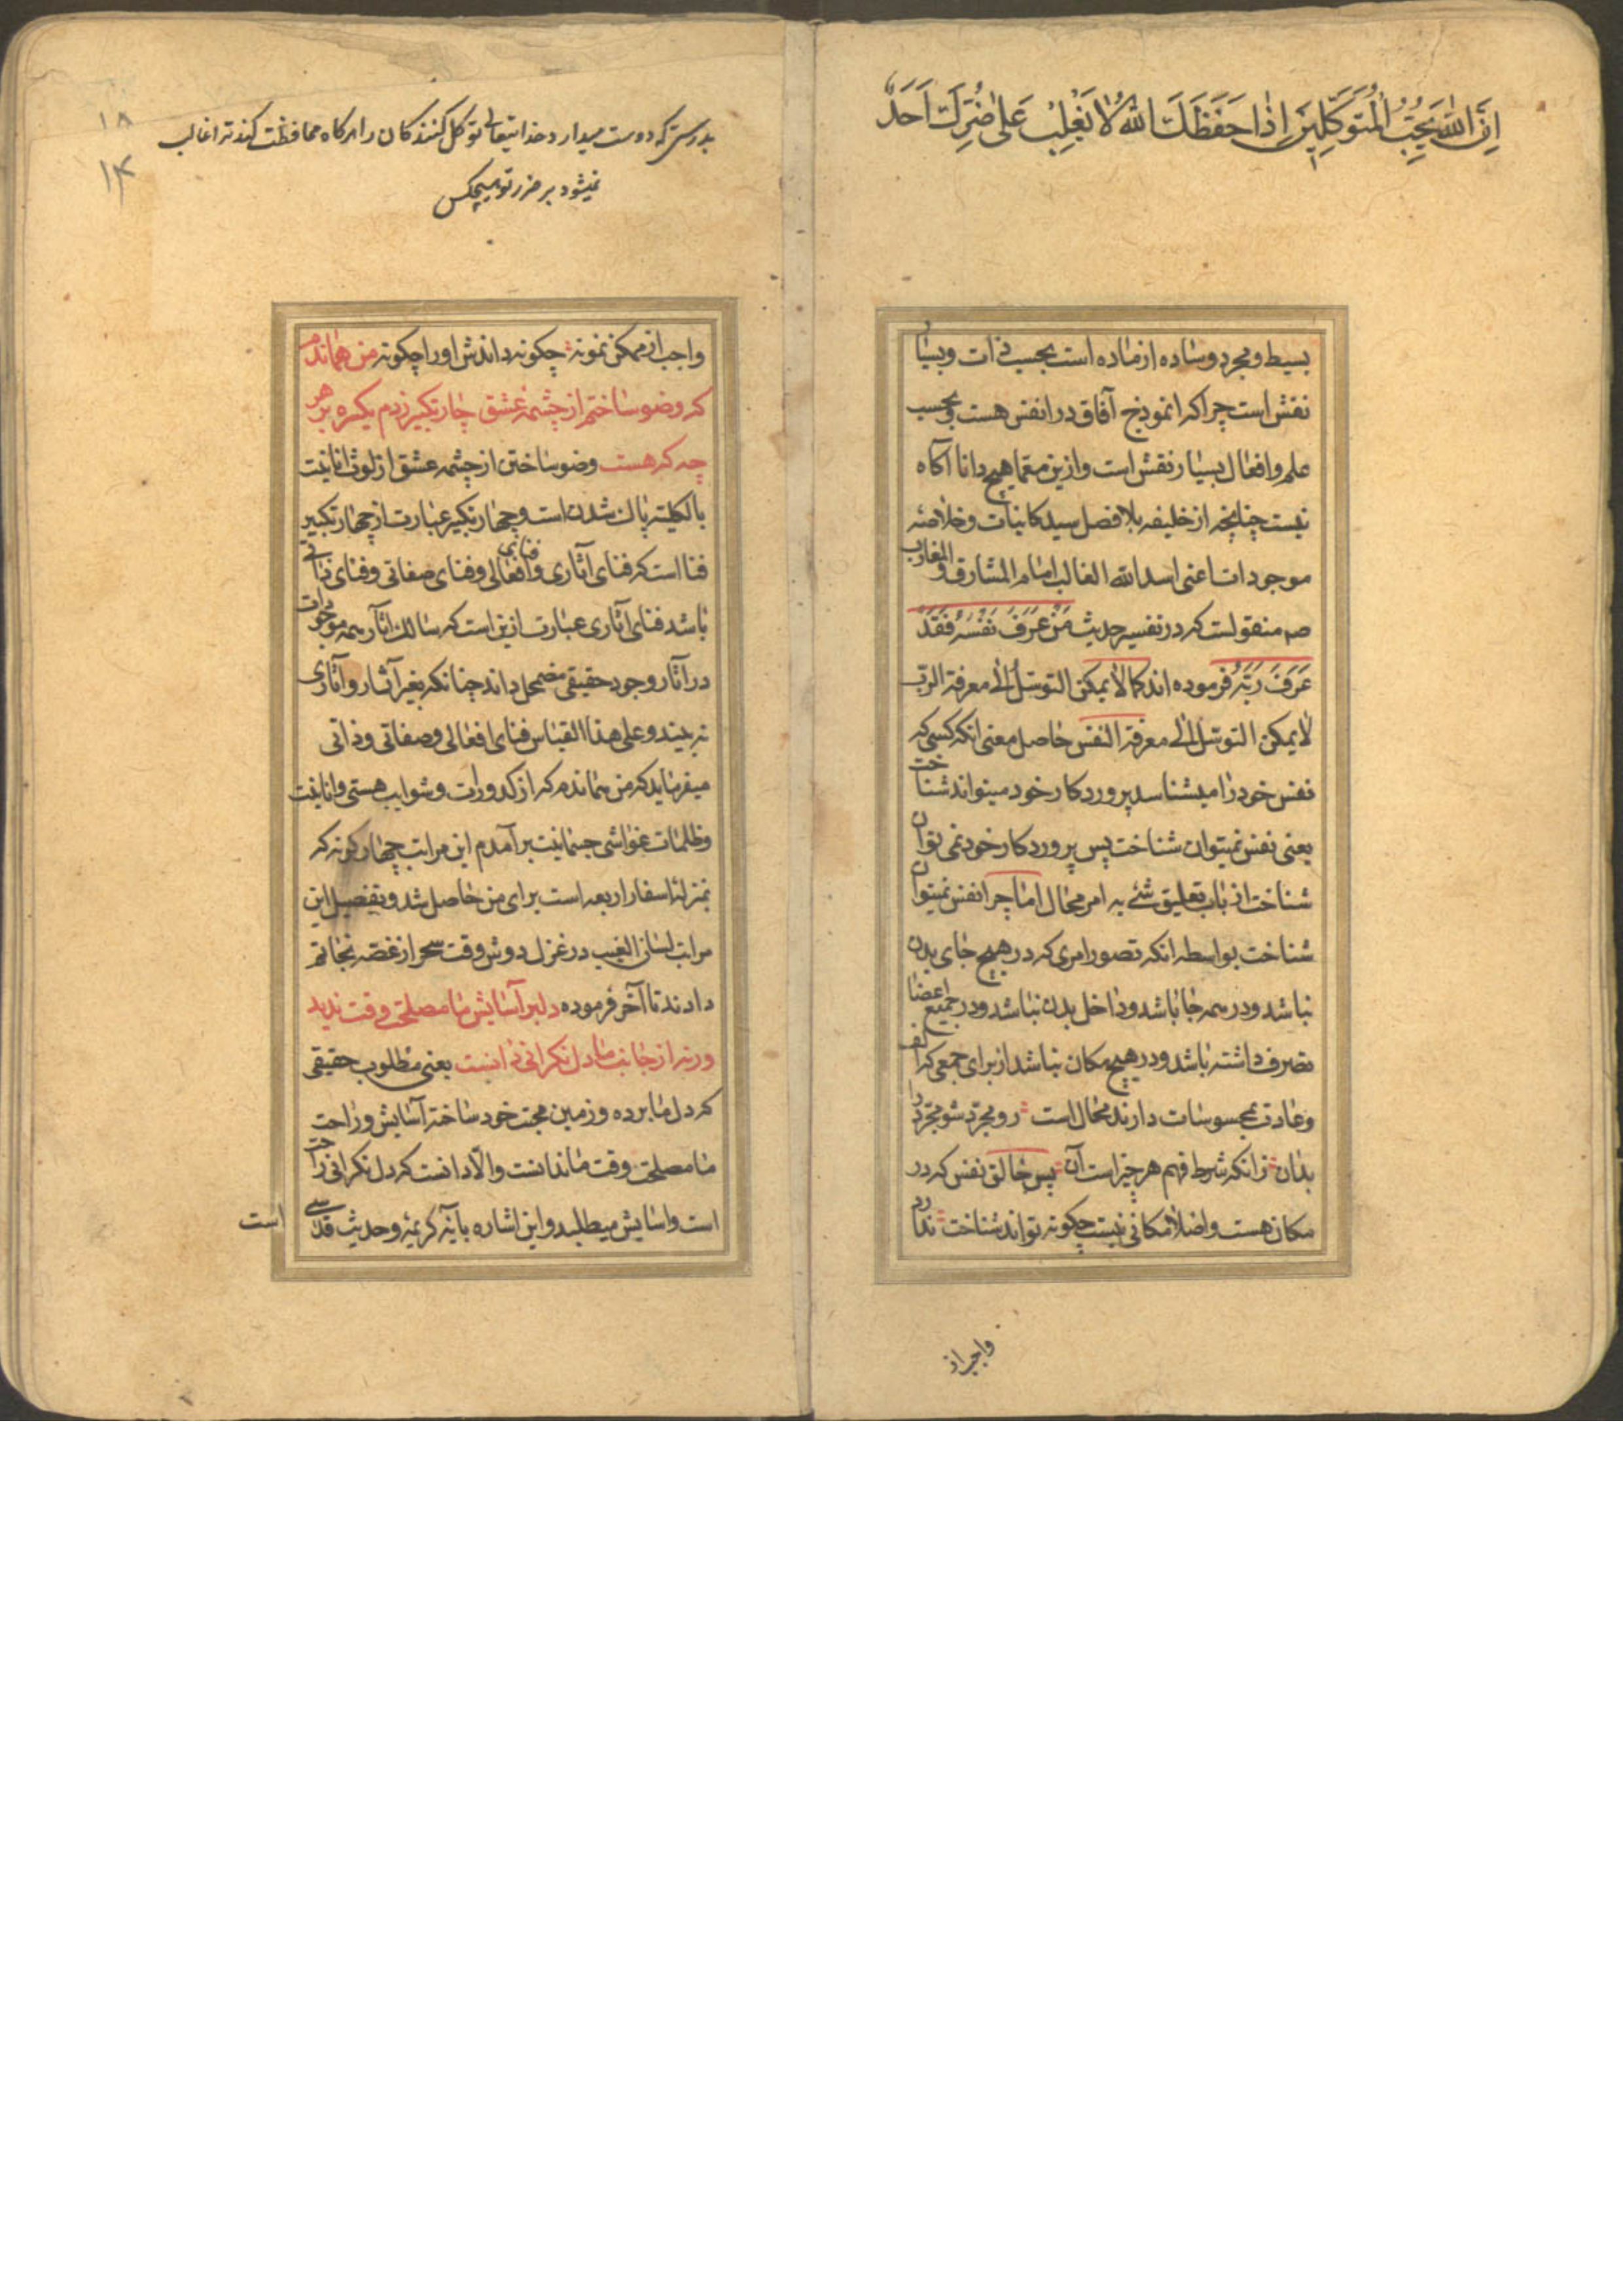 اِنَّ اللّٰهَ يُحِبُّ الْمُتَوَكِّلِينَ اِذَا حَفَظَكَ اللّٰهُ لَا يَغْلِبُ عَلٰى ضُرِّكَ اَحَدٌ
بسیط و مجرد و ساده از ماده است بحسب ذات و بسیار
نقش است چرا که انموذج آفاق در انفس هست و بحسب
علم و افعال بسیار نقش است و ازین معما هیچ دانا آکاه
نیست چنانچه از خلیفه بلا فصل سید کاینات و خلاصهٔ
موجودات اعنی اسد الله الغالب امام المشارق و المغارب
صم منقولست که در تفسیر حدیث مَنْ عَرَفَ نَفْسَهُ فَقَدْ
عَرَفَ رَبَّهُ فرموده اند کما لا یمکن التوسّل الی معرفة الربّ
لا یمکن التوسّل الی معرفة النفس حاصل معنی انکه کسی که
نفس خود را میشناسد پروردکار خود میتواند شناخت
یعنی نفس نمیتوان شناخت پس پروردکار خود نمی توان
شناخت از باب تعلیق شئ به امر محال اما چرا نفس نمیتوان
شناخت بواسطه انکه تصور امری که در هیچ جای بدن
نباشد و در همه جا باشد و داخل بدن نباشد و در جمیع اعضا
تصرف داشته باشد و در هیچ مکان نباشد از برای جمعی که الف
و عادت بمحسوسات دارند محال است رو مجرد شو مجرد را
بدان زانکه شرط فهم هر چیز است آن پس خالق نفس که در
مکان هست و اصلا مکانی نیست چکونه تواند شناخت ندارد
واجب از
۱۸
۱۴
بدرستی که دوست میدارد خدایتعالی توکل کنندکان را هرکاه محافظت کند ترا غالب
نمیشود بر ضرر تو هیچکس
واجب از ممکن نمونه چکونه داندش او را چکونه من هماندم
که وضو ساختم از چشمه عشق چار تکبیر زدم یکسره بر هر
چه که هست وضو ساختن از چشمه عشق از لوث انانیت
بالکلیه پاک شدن است و چهار تکبیر عبارت از چهار تکبیر
فنا است که فنای آثاری و فنای افعالی و فنای صفاتی و فنای ذاتی
باشد فنای آثاری عبارت ازین است که سالک آثار همه موجودات
در آثار وجود حقیقی مضمحل داند چنانکه بغیر آثار و آثاری
نه بیند و علی هذا القیاس فنای افعالی و صفاتی و ذاتی
میفرماید که من هماندم که از کدورات و شوایب هستی و انانیت
و ظلمات غواشی جسمانیت برآمدم این مراتب چهار کونه که
بمنزلهٔ اسفار اربعه است برای من حاصل شد و تفصیل این
مراتب لسان الغیب در غزل دوش وقت سحر از غصه نجاتم
دادند تا آخر فرموده دلبر آسایش ما مصلحت وقت ندید
ورنه از جانب ما دل نکرانی دانست یعنی مطلوب حقیقی
که دل ما برده و زمین محبت خود ساخته آسایش و راحت
ما مصلحت وقت ما ندانست والا دانست که دل نکرانی راحت
است و اسایش میطلبد و این اشاره بآیه کریمهٔ و حدیث قدسی
است